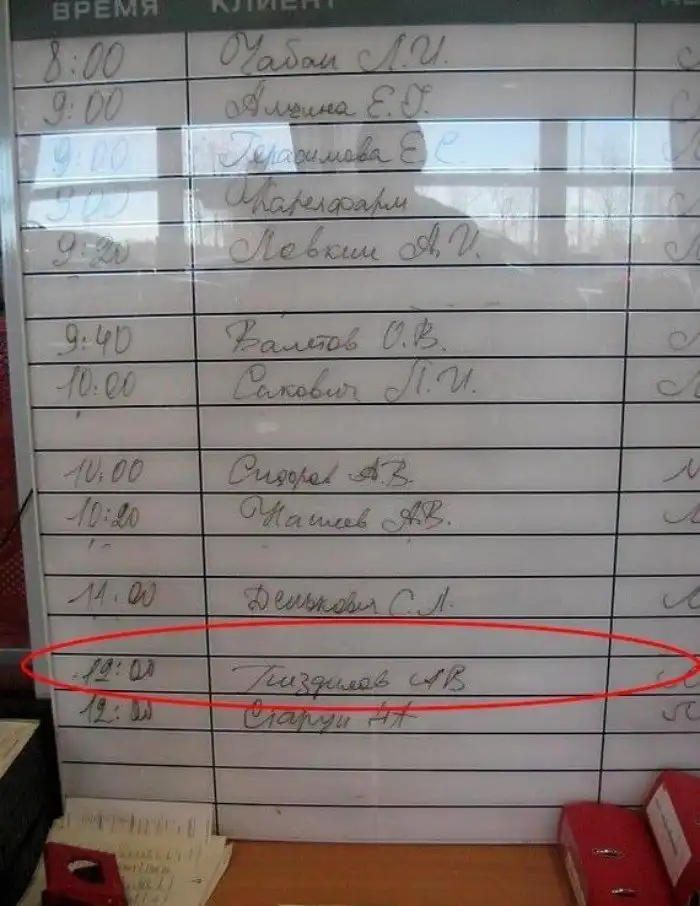 ВРЕМЯ КЛИЕНТ
8:00 Чабан Л.И.
9:00 Алцина Е.Г.
9:00 Герасимова Е.С.
9:00 Карелфарм
9:20 Левкин А.И.
9:40 Валетов О.В.
10:00 Сакович П.И.
10:00 Сидоров А.В.
10:20 А.В.
11:00 С.Л.
12:00 Пиздилов АВ
12:00 Старун